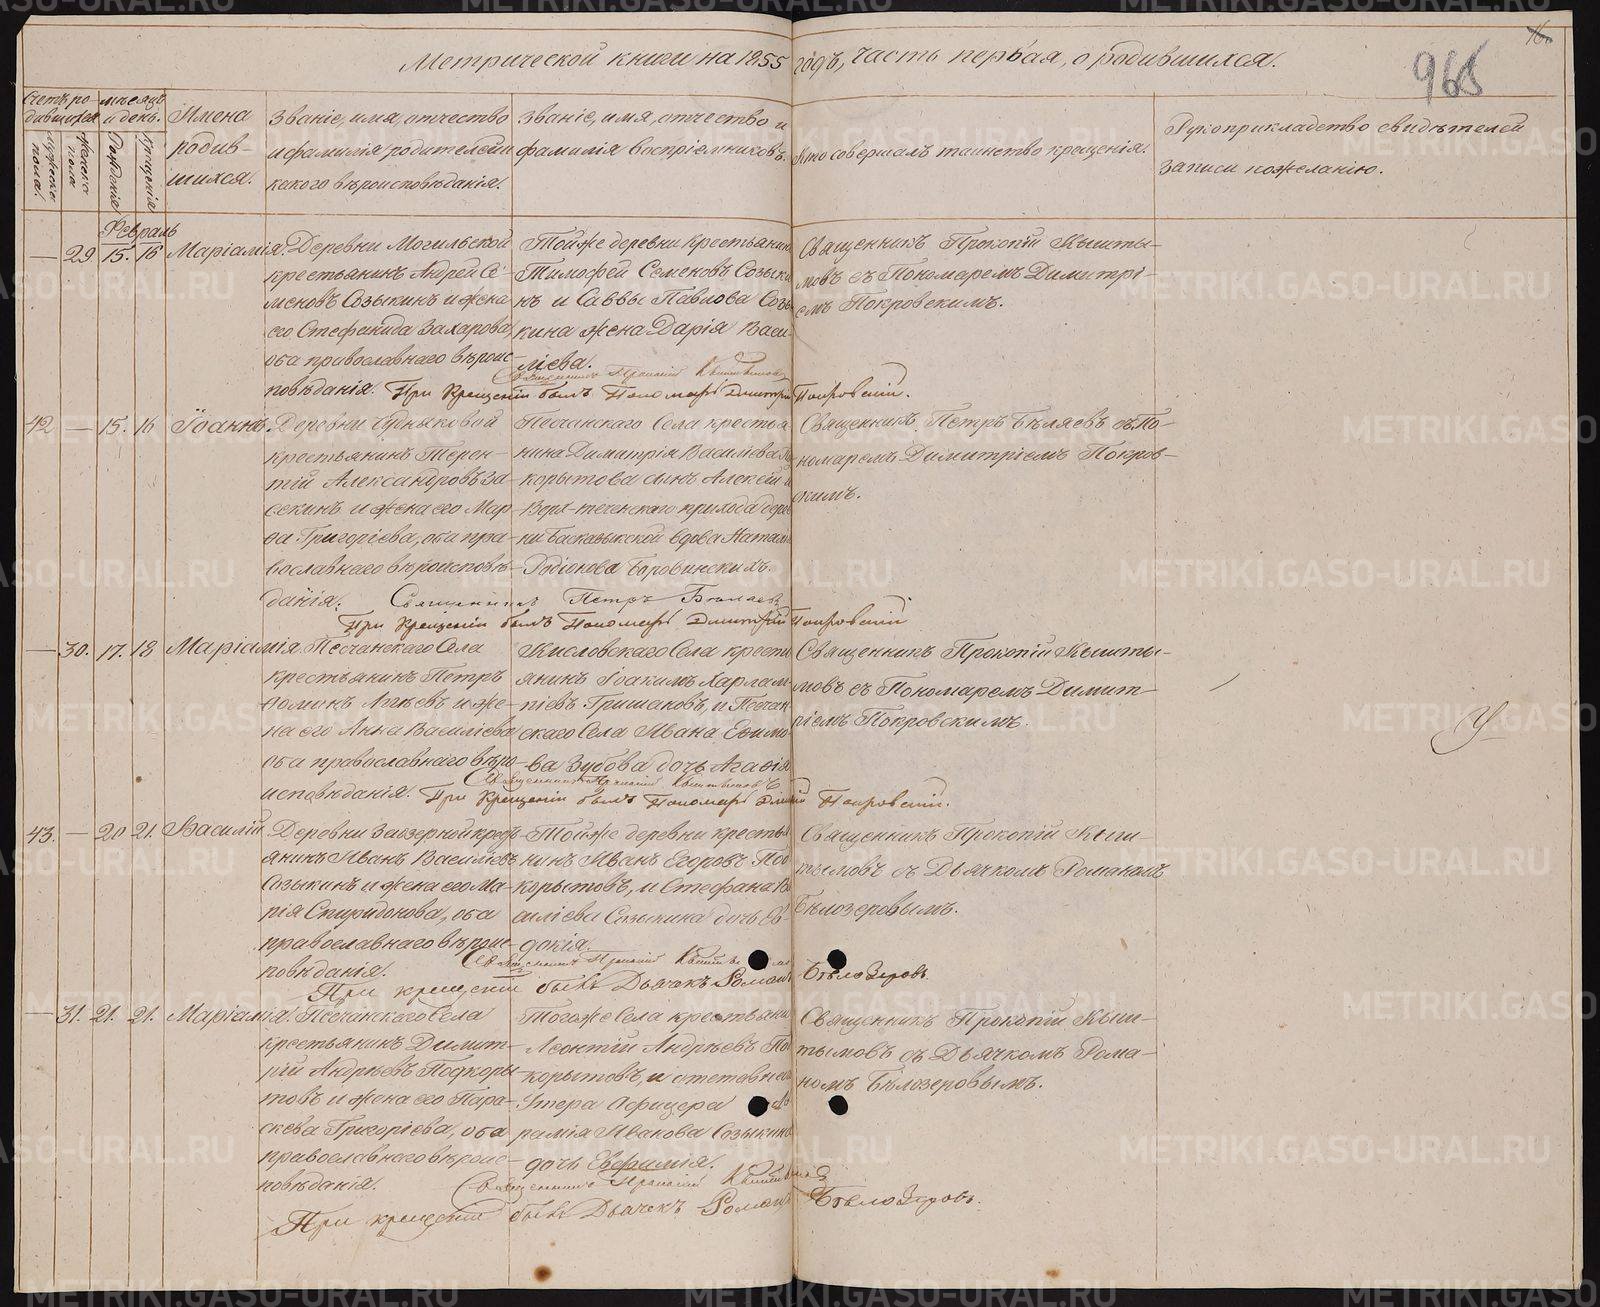 Метрической книги на 1855 годъ, часть первая, о родившихся.
965
Счетъ ро-
дившихся
мужеска
пола.
женска
пола
мѣсяцъ
и день.
Рожденіе
Крещенія
Имена
родив-
шихся.
Званіе, имя, отчество
и фамилія родителей и
какого вѣроисповѣданія.
Званіе, имя, отчество и
фамилія воспріемниковъ.
Кто совершалъ таинство крещенія.
Рукоприкладство свидѣтелей
записи по желанію.
Февраль
— 29 15. 16 Маріамія.
Деревни Могильской
крестьянинъ Андрей Се-
меновъ Созыкинъ и жена
его Стефанида Захарова,
оба православнаго вѣроис-
повѣданія.
Тойже деревни крестьянин
Тимофей Семеновъ Созыки
нъ и Саввы Павлова Созы
кина жена Дарія Васи-
ліева.
Священникъ Прокопій Кышты-
мовъ съ Пономаремъ Димитрі-
емъ Покровскимъ.
Священникъ Прокопій Кыштымовъ
При Крещеніи былъ Пономарь Дмитрій Покровскій.
42 — 15. 16 Іоаннъ.
крестьянинъ Терен-
тій Александровъ За-
секинъ и жена его Мар-
ѳа Григоріева, оба пра-
вославнаго вѣроисповѣ-
данія.
Песчанскаго Села крестья
нина Димитрія Василіева По
корытова сынъ Алексій и
Верх-теченскаго прихода дерев
ни Баскавыкской вдова Натал
Родіонова Боровинскихъ.
Священникъ Петръ Бѣляевъ съ По-
номаремъ Димитріемъ Покров-
скимъ.
Священникъ Петръ Бѣляевъ
При Крещеніи былъ Пономарь Дмитрій Покровскій
— 30. 17. 18 Маріамія.
Песчанскаго Села
крестьянинъ Петръ
на его Анна Василіева
оба православнаго вѣро-
исповѣданія.
Кисловскаго Села крести
янинъ Іоакимъ Харлам-
піевъ Гришаковъ, и Песчан
скаго Села Ивана Ефимо
ва Зубова дочь Агафія
Священникъ Прокопій Кышты-
мовъ съ Пономаремъ Димит-
ріемъ Покровскимъ.
Священникъ Прокопій Кыштымовъ
При Крещеніи былъ Пономарь Дмитрій Покровскій.
43. — 20 21. Василій
Деревни Заозерной кресть-
янинъ Иванъ Василіевъ
Созыкинъ и жена его Ма-
рія Спиридонова, оба
православнаго вѣроис-
повѣданія.
Тойже деревни крестья
нинъ Иванъ Егоровъ Под
корытовъ, и Стефана Ва
силіева Созыкина дочь Ев-
докія.
Священникъ Прокопій Кыш-
тымовъ съ Дьячкомъ Романомъ
Бѣлозеровымъ.
Священникъ Прокопій
При крещеніи былъ Дьячекъ Романъ Бѣлозеровъ
— 31. 21. 21. Маріамія.
Песчанскаго Села
крестьянинъ Димит-
рій Андреевъ Подкоры
товъ и жена его Пара-
скева Григоріева, оба
православнаго вѣроис-
повѣданія.
Тогоже Села крестьяни
Леонтій Андреевъ Под
корытовъ, и отставнаго
Унтера Офицера
рамія Ивакова Созыкина
дочь Евфимія.
Священникъ Прокопій Кыш-
тымовъ съ Дьячкомъ Рома-
номъ Бѣлозеровымъ.
Священникъ Прокопій Кыштымовъ
При крещеніи былъ Дьячекъ Романъ Бѣлозеровъ.
METRIKI.GASO-URAL.RU